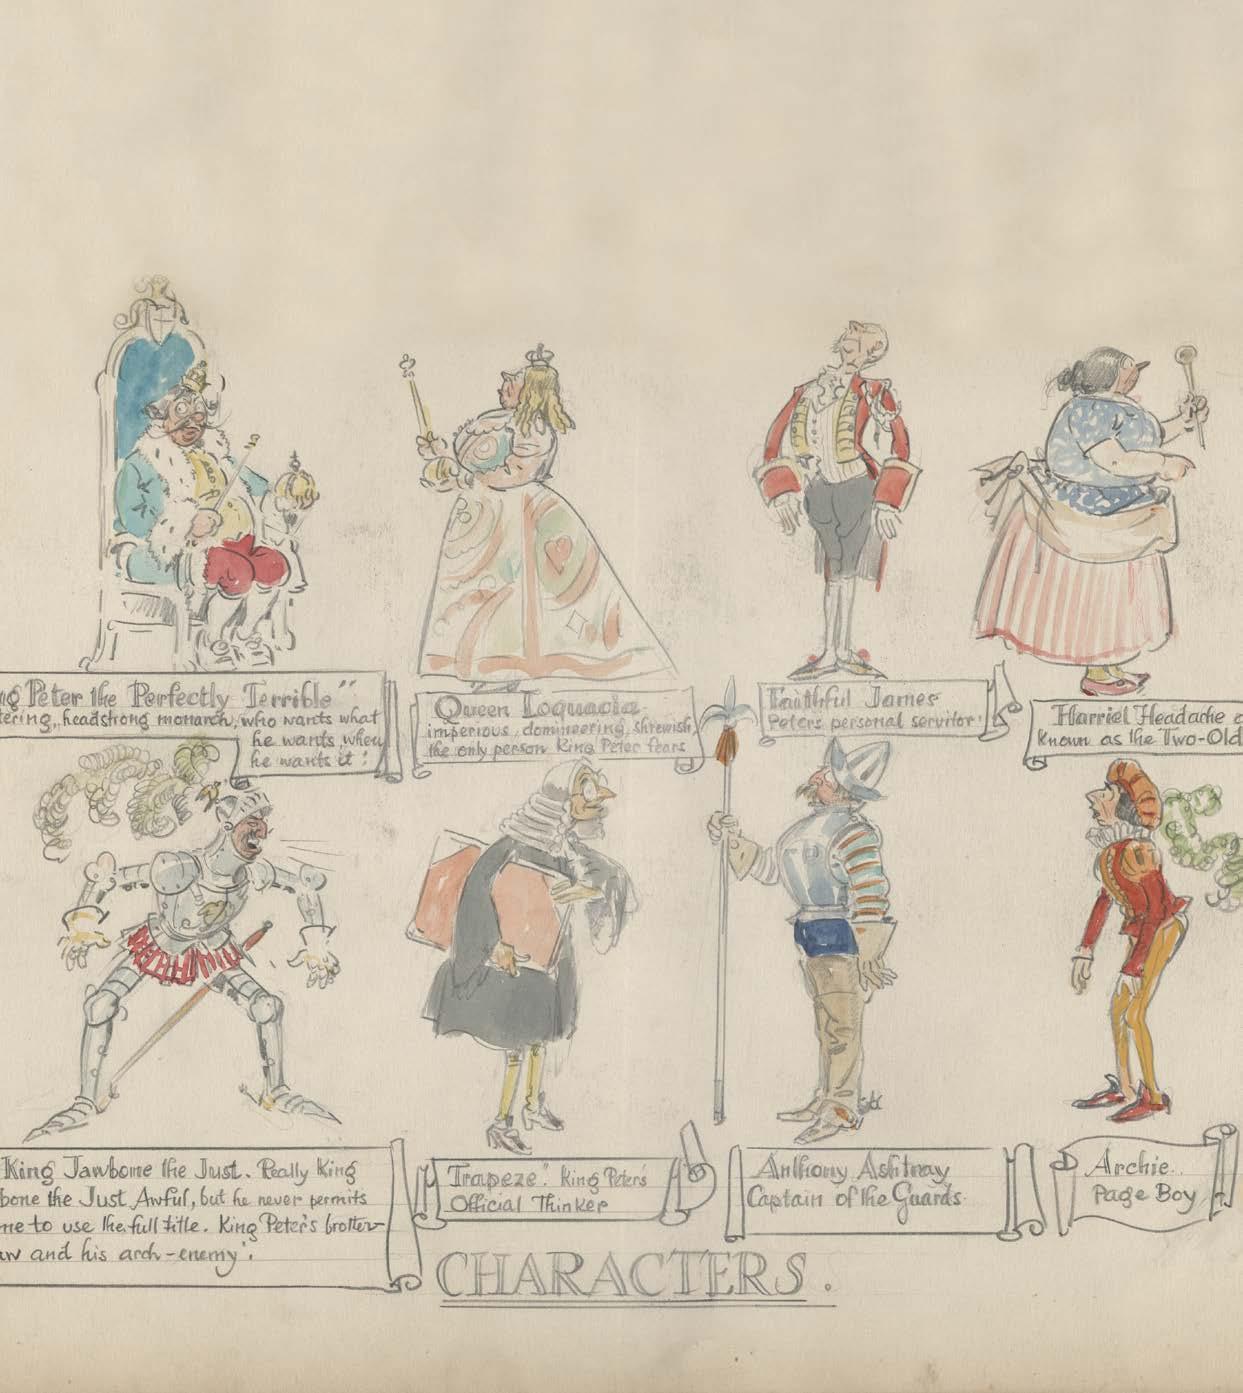 Peter the Perfectly Terrible"
headstrong monarch, who wants what
he wants when
he wants it!
Queen Loquacia
imperious, domineering, shrewish,
the only person King Peter fears
Faithful James
Peter's personal servitor!
Harriet Headache
Known as the Two-Old
King Jawbone the Just. Really King
bone the Just Awful, but he never permits
me to use the full title. King Peter's brother
aw and his arch-enemy'.
"Trapeze". King Peter's
Official Thinker
Anthony Ashtray
Captain of the Guards
Archie.
Page Boy
CHARACTERS.